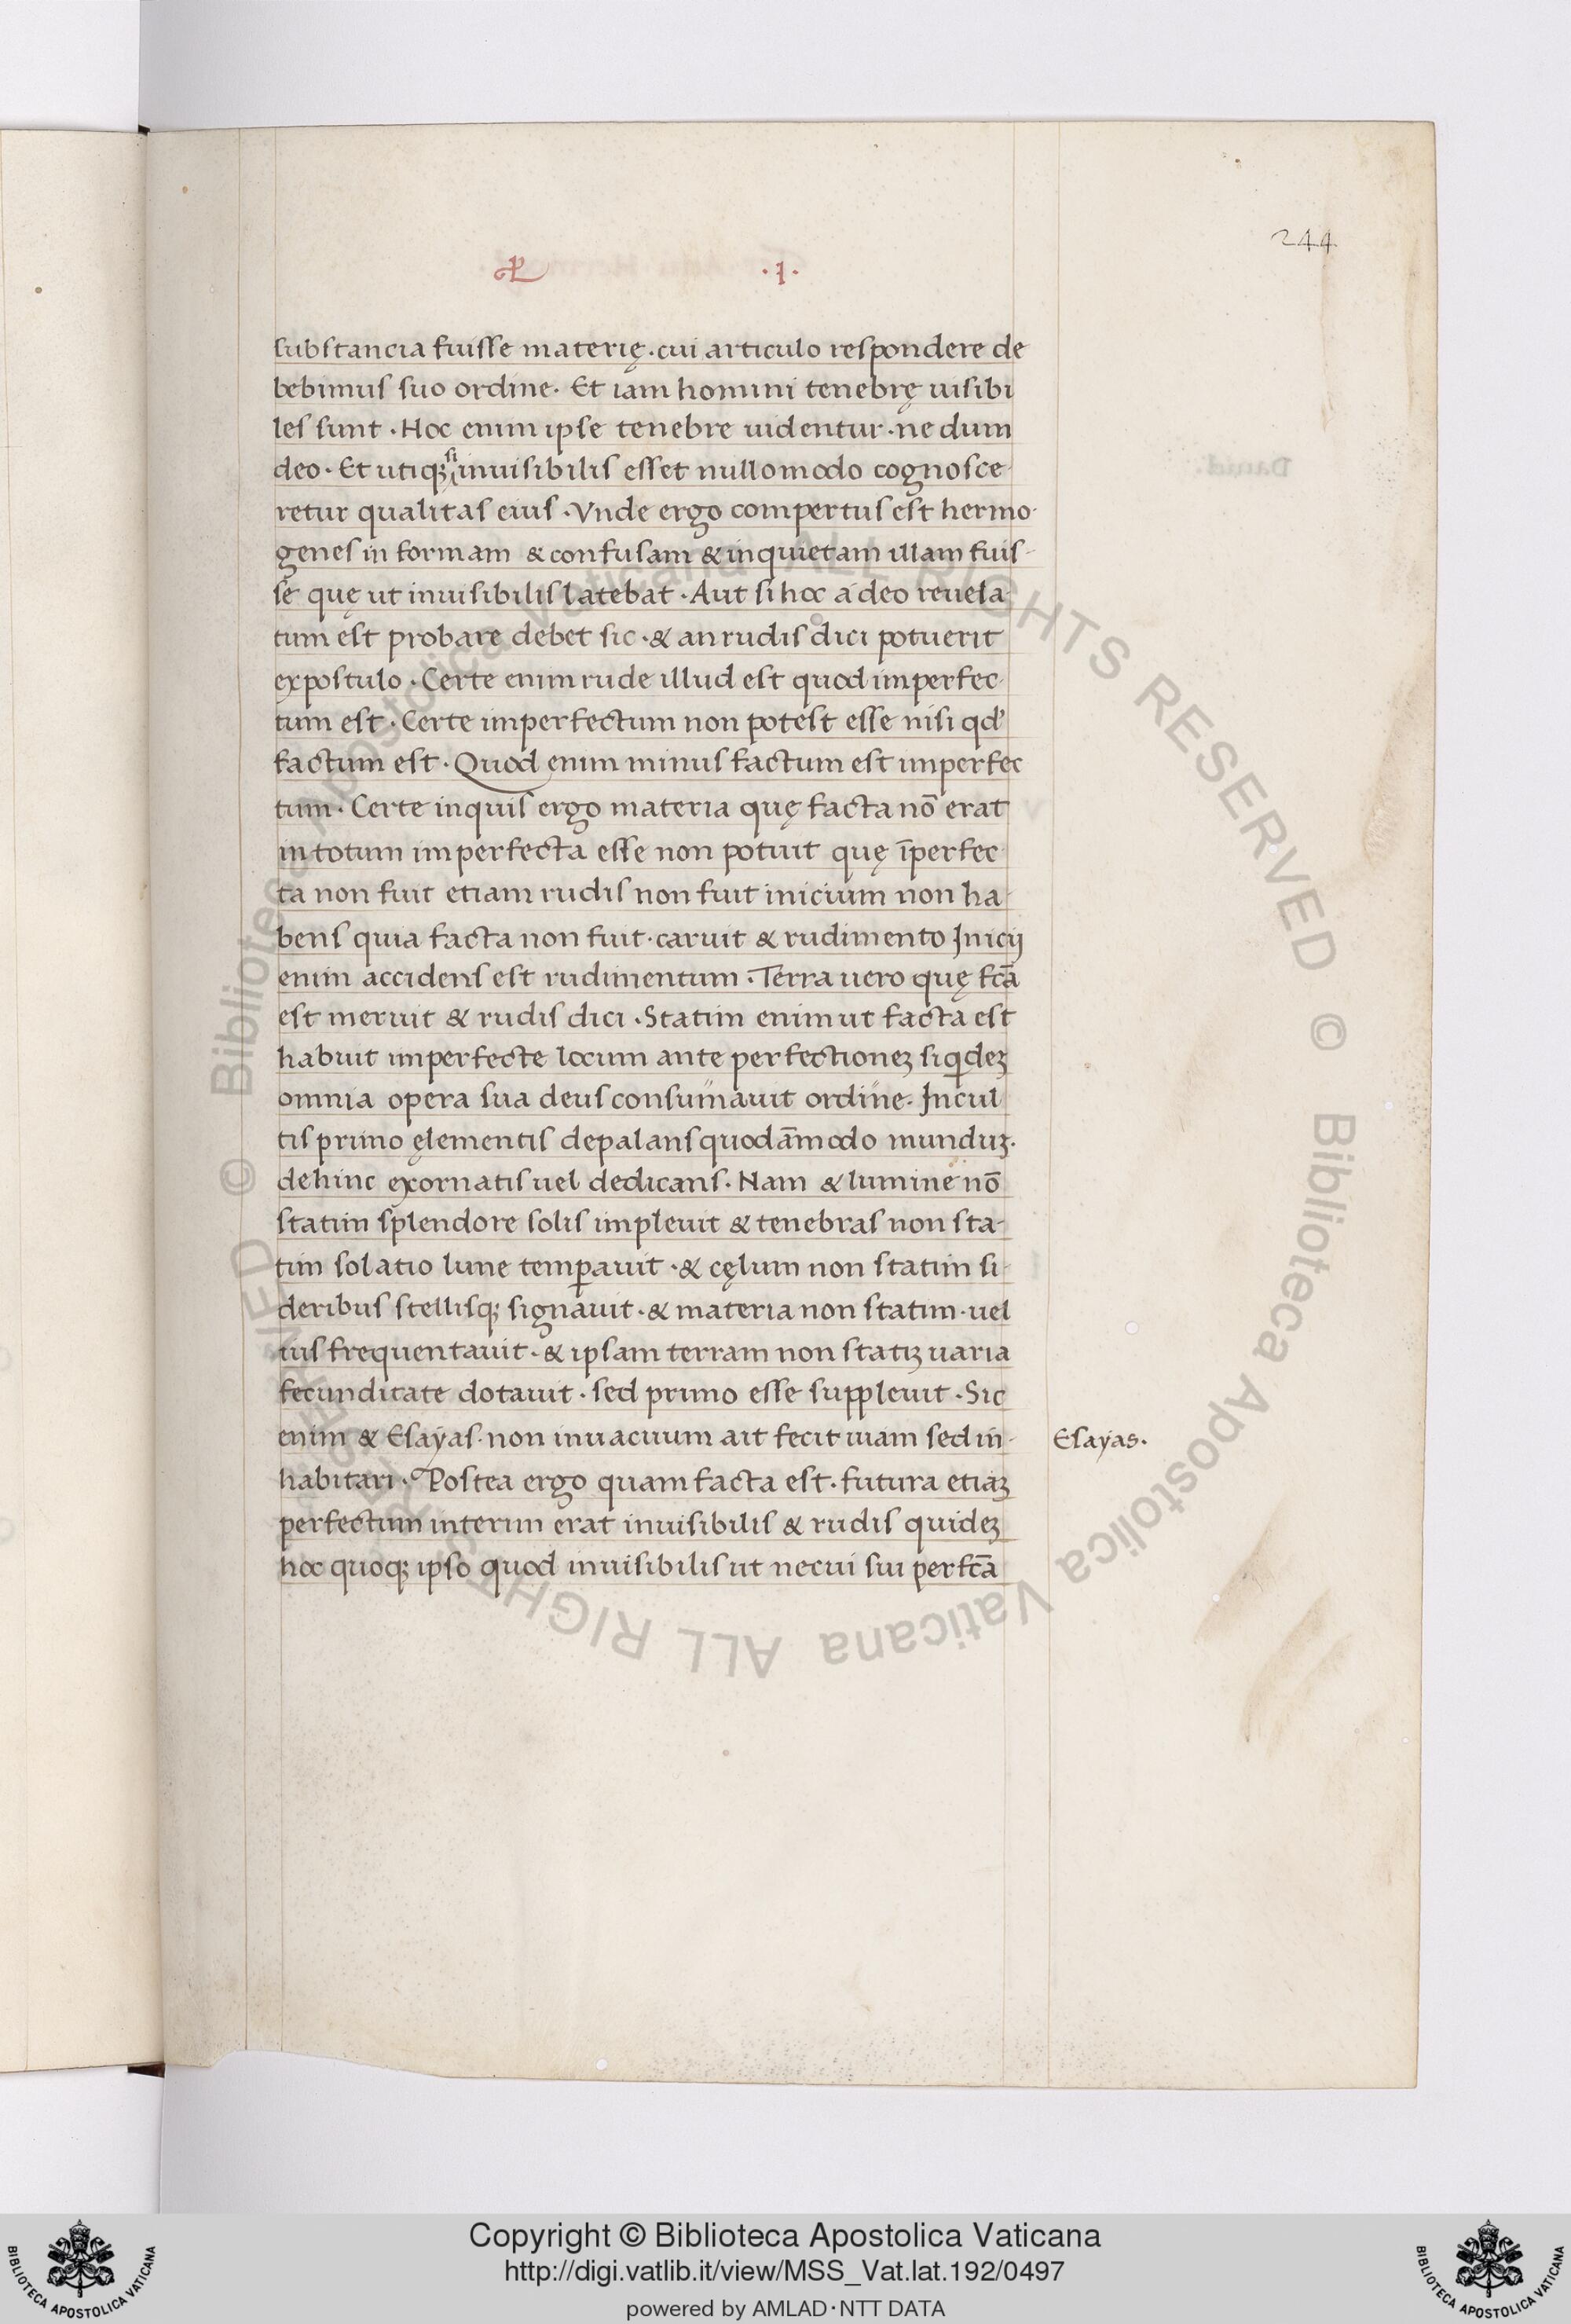 244
·1·
substancia fuisse materię · cui articulo respondere de
bebimus suo ordine · Et iam homini tenebrę uisibi
les sunt · Hoc enim ipse tenebre uidentur · ne dum
deo · Et utiqꝫ si inuisibilis esset nullomodo cognosce-
retur qualitas eius · Vnde ergo compertus est hermo-
genes in formam & confusam & inquietam illam fuis-
se quę ut inuisibilis latebat · Aut si hoc a deo reuela-
tum est probare debet sic · & an rudis dici potuerit
expostulo · Certe enim rude illud est quod imperfec-
tum est · Certe imperfectum non potest esse nisi qd'
factum est · Quod enim minus factum est imperfec
tum · Certe inquis ergo materia quę facta nō erat
in totum imperfecta esse non potuit quę īperfec-
ta non fuit etiam rudis non fuit inicium non ha-
bens quia facta non fuit · caruit & rudimento Inicij
enim accidens est rudimentum · Terra uero quę fcā
est meruit & rudis dici · Statim enim ut facta est
habuit imperfecte locum ante perfectioneꝫ siqideꝫ
omnia opera sua deus consumauit ordine · Incul
tis primo ęlementis depalans quodāmodo munduꝫ ·
dehinc exornatis uel dedicans · Nam & lumine nō
statim splendore solis impleuit & tenebras non sta-
tim solatio lune temꝑauit · & cęlum non statim si-
deribus stellisqꝫ signauit · & materia non statim · uel
uis frequentauit · & ipsam terram non statiꝫ uaria
fecunditate dotauit · sed primo esse suppleuit · Sic
enim & Esayas · non inuacuum ait fecit uiam sed in-
Esayas ·
habitari · Postea ergo quam facta est · futura etiaꝫ
perfectum interim erat inuisibilis & rudis quideꝫ
hoc quoqꝫ ipso quod inuisibilis ut necui sui perfcā
© Biblioteca Apostolica Vaticana ALL RIGHTS RESERVED © Biblioteca Apostolica Vaticana ALL RIGHTS RESERVED
Copyright © Biblioteca Apostolica Vaticana
http://digi.vatlib.it/view/MSS_Vat.lat.192/0497
powered by AMLAD·NTT DATA
BIBLIOTECA APOSTOLICA VATICANA
BIBLIOTECA APOSTOLICA VATICANA